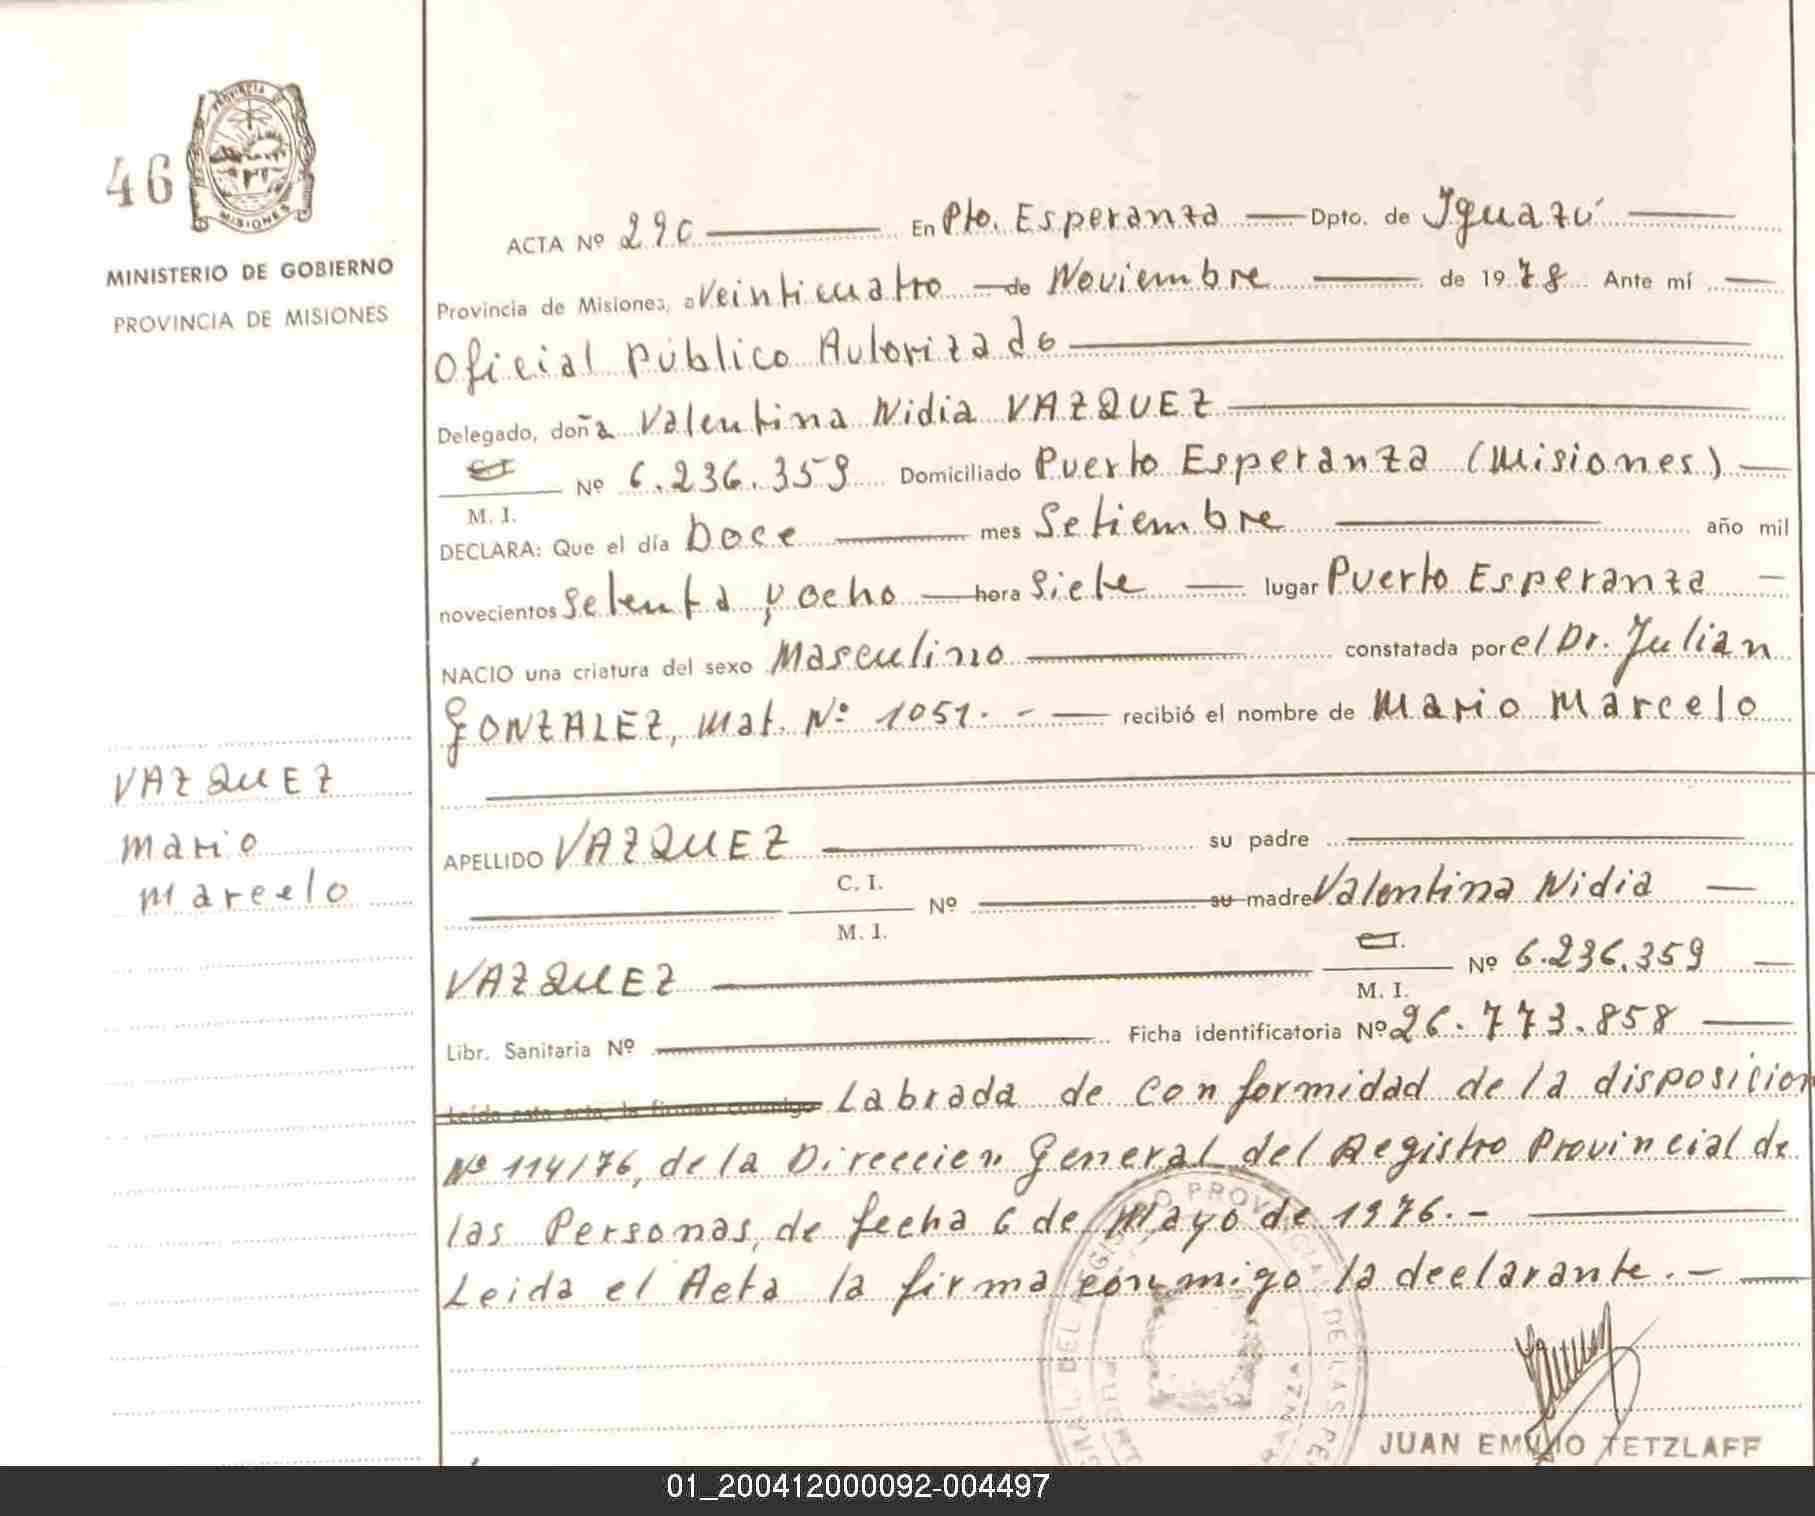 46
PROVINCIA DE
MISIONES
MINISTERIO DE GOBIERNO
PROVINCIA DE MISIONES
VAZQUEZ
Mario
Marcelo
ACTA Nº 290 En Pto. Esperanza Dpto. de Iguazú
Provincia de Misiones, a Veinticuatro de Noviembre de 1978 Ante mí
Oficial Público Autorizado
Delegado, doña Valentina Nidia VAZQUEZ
C.I.
Nº 6.236.359 Domiciliado Puerto Esperanza (Misiones)
M. I.
DECLARA: Que el día Doce mes Setiembre año mil
novecientos Setenta y ocho hora Siete lugar Puerto Esperanza
NACIO una criatura del sexo Masculino constatada por el Dr. Julian
GONZALEZ, Mat. Nº 1051.- recibió el nombre de Mario Marcelo
APELLIDO VAZQUEZ su padre
C. I.
Nº su madre Valentina Nidia
M. I.
C.I.
VAZQUEZ Nº 6.236.359
M. I.
Libr. Sanitaria Nº Ficha identificatoria Nº 26.773.858
Leída esta acta, la firman conmigo Labrada de Conformidad de la disposicion
Nº 114/76, de la Direccion General del Registro Provincial de
las Personas, de fecha 6 de Mayo de 1976.-
Leida el Acta la firma conmigo la declarante.-
JUAN EMILIO TETZLAFF
01_200412000092-004497